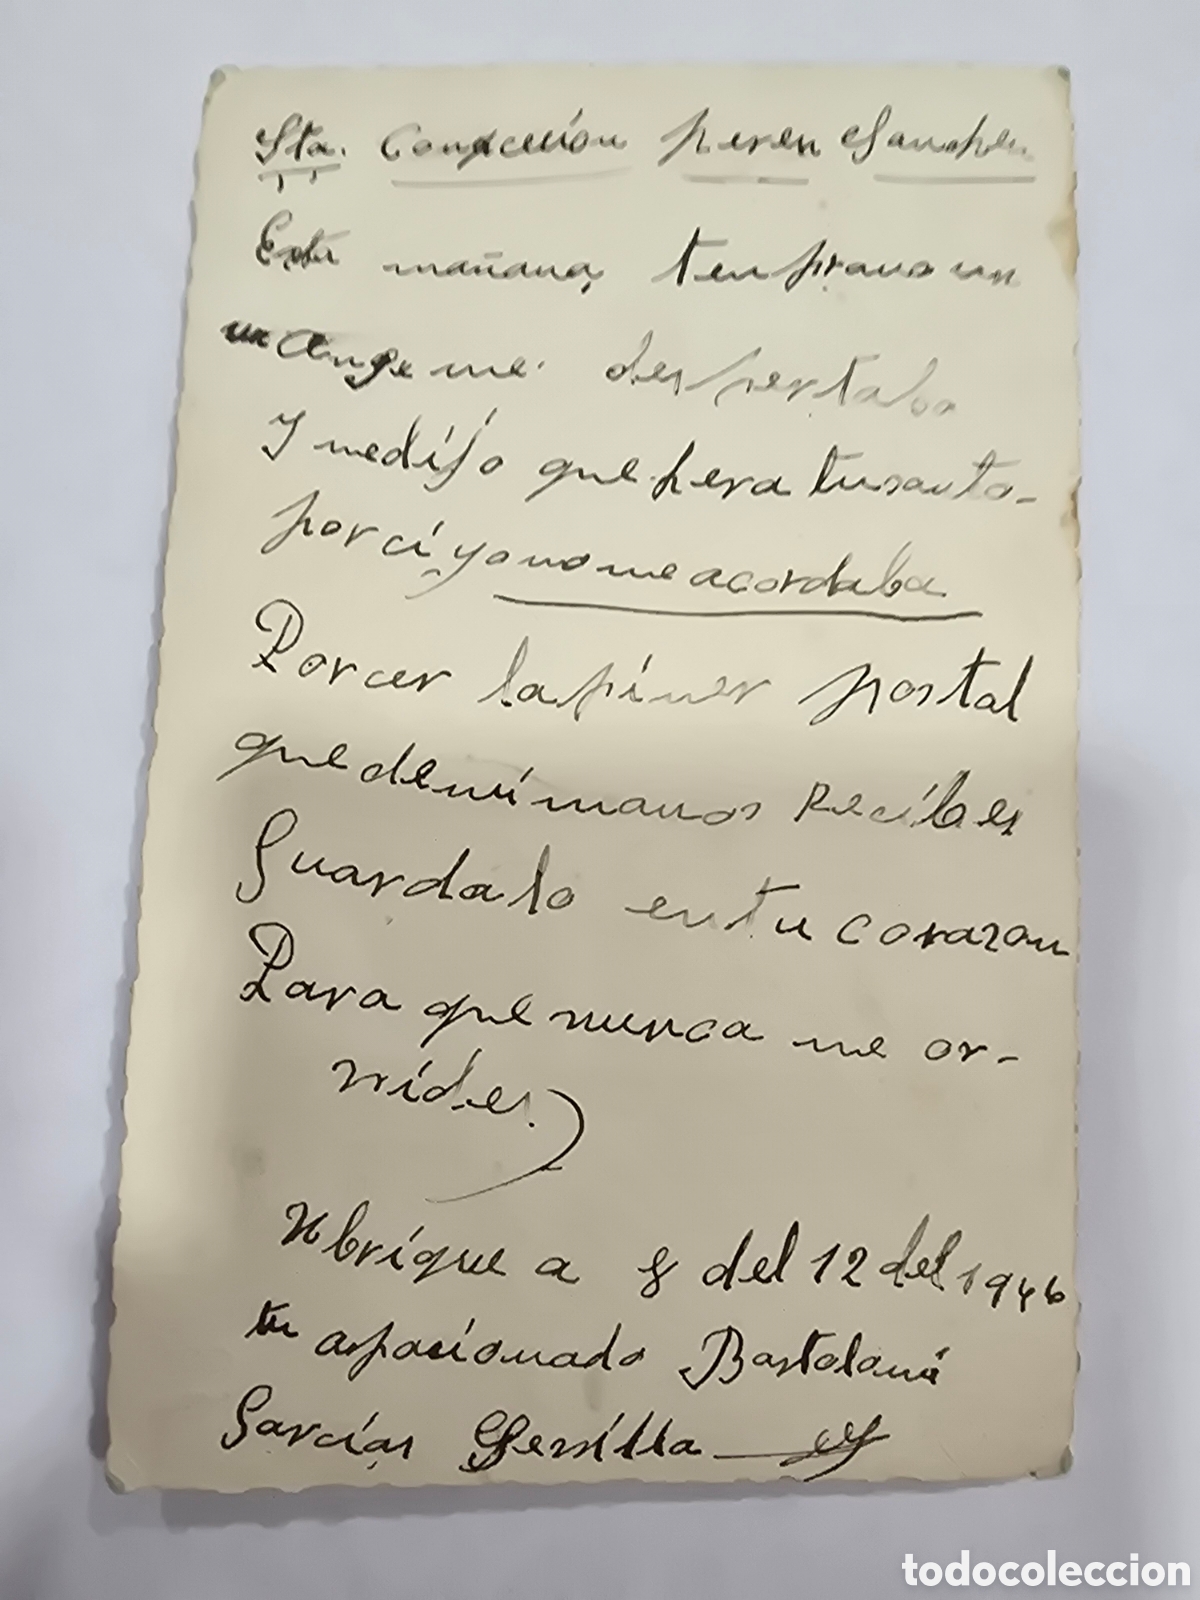 Sta. Concecíon peren Sanchen
Esta mañana, tenprano un
un Ange me despertaba
Y medíjo que hera tusanto-
por cí yo no me acordaba
Por cer la pímer postal
que demímanos Recíbes
Guardalo en tu corazon
Para que nunca me or-
vides.)
Ubríque a 8 del 12 del 1946
tu apacionado
Garcías
todocoleccion